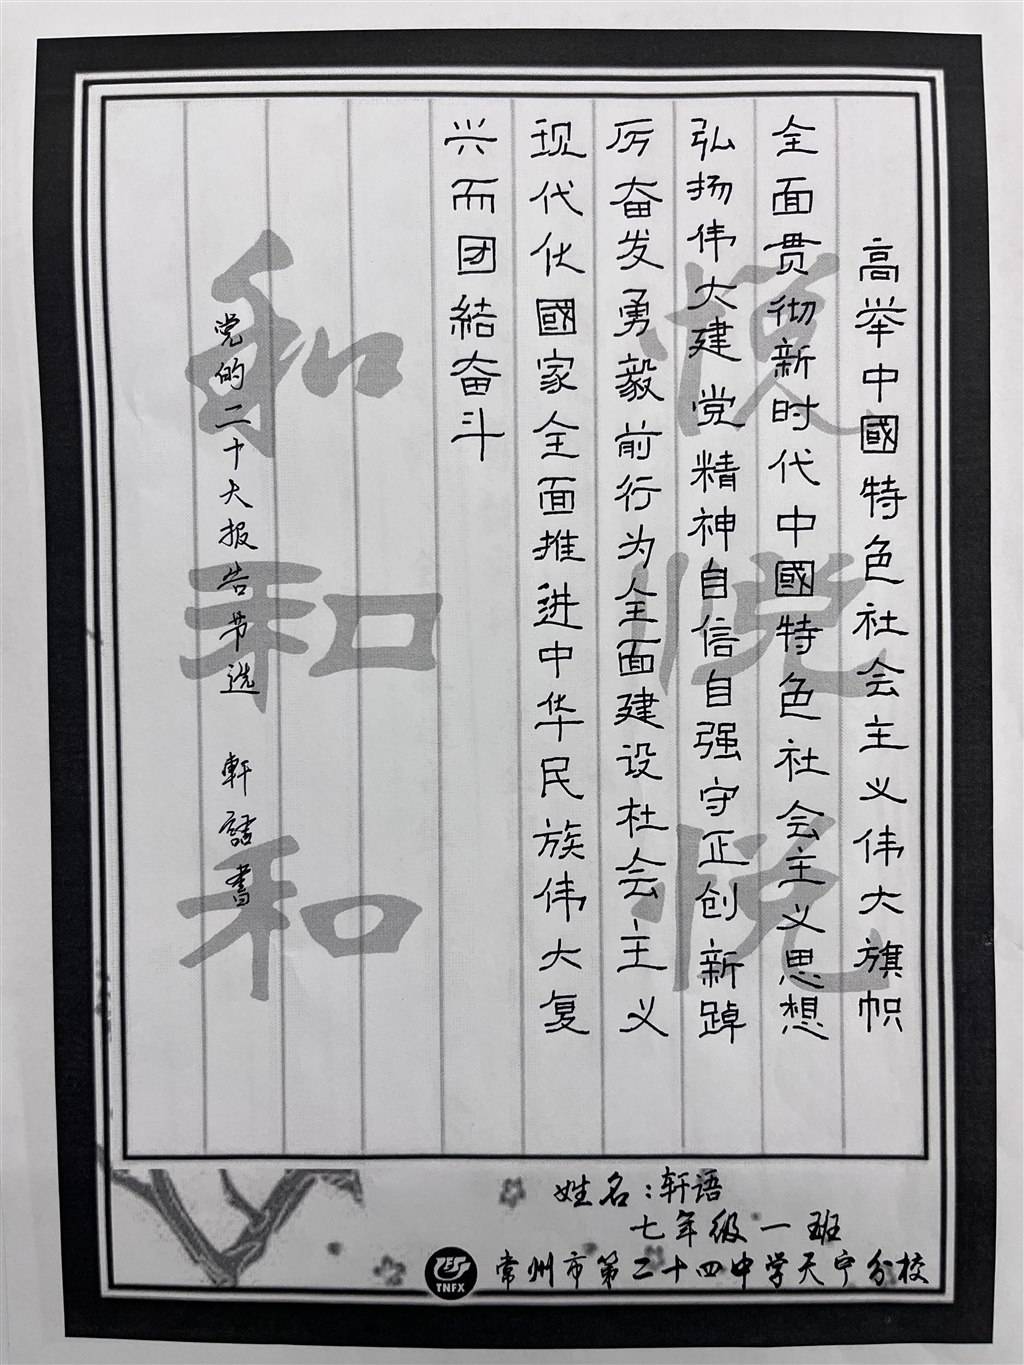 高举中國特色社会主义伟大旗帜
全面贯彻新时代中國特色社会主义思想
弘扬伟大建党精神自信自强守正创新踔
厉奋发勇毅前行为全面建设社会主义
现代化國家全面推进中华民族伟大复
兴而团結奋斗
党的二十大报告节选 軒語書
悦悦悦
和和和
姓名：轩语
七年级一班
常州市第二十四中学天宁分校
TNFX